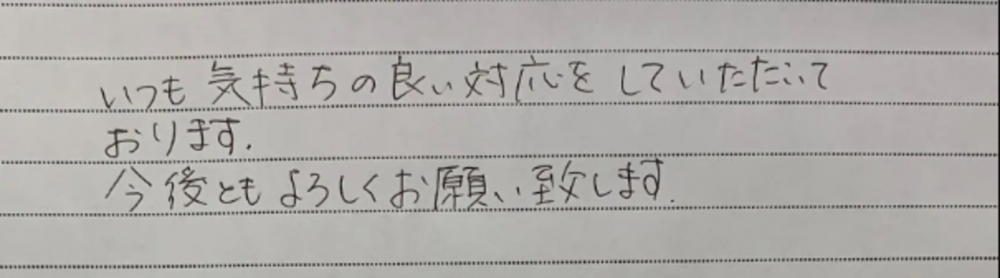 いつも気持ちの良い対応をしていただいて
おります.
今後ともよろしくお願い致します.